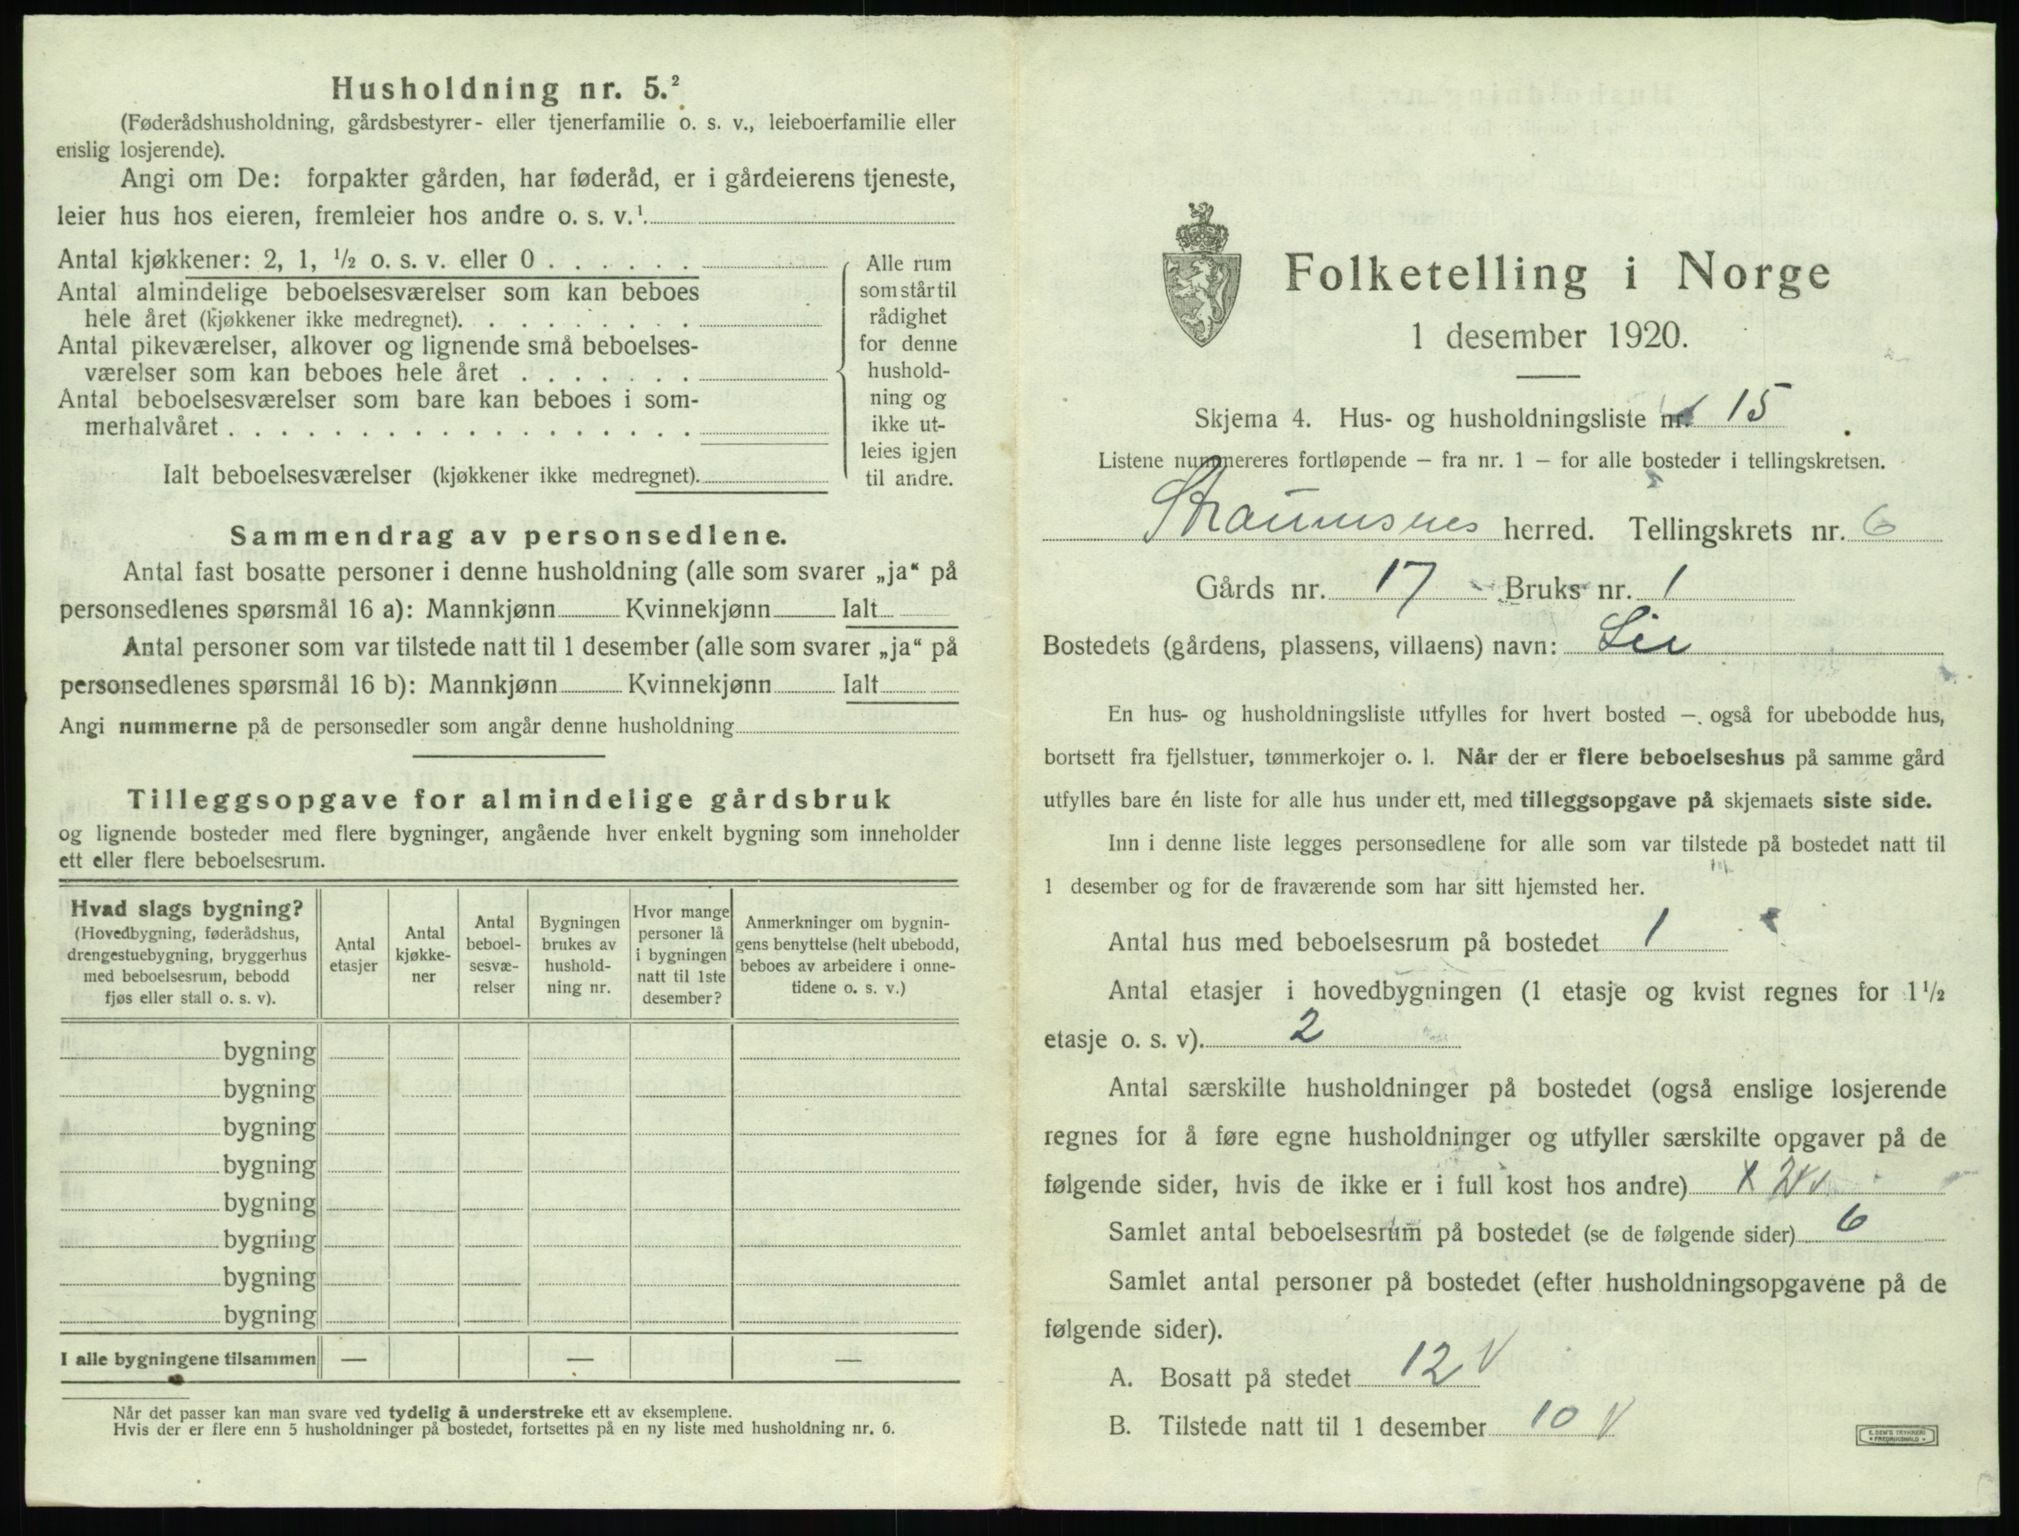 Husholdning nr. 5.²
(Føderådshusholdning, gårdsbestyrer- eller tjenerfamilie o. s. v., leieboerfamilie eller
enslig losjerende).
Angi om De: forpakter gården, har føderåd, er i gårdeierens tjeneste,
leier hus hos eieren, fremleier hos andre o. s. v.¹
Antal kjøkkener: 2, 1, ½ o. s. v. eller 0 . . . . . .
Antal almindelige beboelsesværelser som kan beboes
hele året (kjøkkener ikke medregnet). . . . . . . . . .
Antal pikeværelser, alkover og lignende små beboelses-
værelser som kan beboes hele året . . . . . . .
Antal beboelsesværelser som bare kan beboes i som-
merhalvåret . . . . . . . . . . . . . . . . . .
Ialt beboelsesværelser (kjøkkener ikke medregnet).
Alle rum
som står til
rådighet
for denne
hushold-
ning og
ikke ut-
leies igjen
til andre.
Sammendrag av personsedlene.
Antal fast bosatte personer i denne husholdning (alle som svarer „ja“ på
personsedlenes spørsmål 16 a): Mannkjønn Kvinnekjønn Ialt
Antal personer som var tilstede natt til 1 desember (alle som svarer „ja“ på
personsedlenes spørsmål 16 b): Mannkjønn Kvinnekjønn Ialt
Angi nummerne på de personsedler som angår denne husholdning
Tilleggsopgave for almindelige gårdsbruk
og lignende bosteder med flere bygninger, angående hver enkelt bygning som inneholder
ett eller flere beboelsesrum.
Hvad slags bygning?
(Hovedbygning, føderådshus,
drengestuebygning, bryggerhus
med beboelsesrum, bebodd
fjøs eller stall o. s. v).
Antal
etasjer
Antal
kjøkke-
ner
Antal
beboel-
sesvæ-
relser
Bygningen
brukes av
hushold-
ning nr.
Hvor mange
personer lå
i bygningen
natt til 1ste
desember?
Anmerkninger om bygnin-
gens benyttelse (helt ubebodd,
beboes av arbeidere i onne-
tidene o. s. v.)
bygning
bygning
bygning
bygning
bygning
bygning
bygning
bygning
I alle bygningene tilsammen — — —
Når det passer kan man svare ved tydelig å understreke ett av eksemplene.
Hvis der er flere enn 5 husholdninger på bostedet, fortsettes på en ny liste med husholdning nr. 6.
Folketelling i Norge
1 desember 1920.
Skjema 4. Hus- og husholdningsliste nr. 15
Listene nummereres fortløpende – fra nr. 1 – for alle bosteder i tellingskretsen.
Straumsnes herred. Tellingskrets nr. 6
Gårds nr. 17 Bruks nr. 1
Bostedets (gårdens, plassens, villaens) navn: Lie
En hus- og husholdningsliste utfylles for hvert bosted – også for ubebodde hus,
bortsett fra fjellstuer, tømmerkojer o. l. Når der er flere beboelseshus på samme gård
utfylles bare én liste for alle hus under ett, med tilleggsopgave på skjemaets siste side.
Inn i denne liste legges personsedlene for alle som var tilstede på bostedet natt til
1 desember og for de fraværende som har sitt hjemsted her.
Antal hus med beboelsesrum på bostedet 1
Antal etasjer i hovedbygningen (1 etasje og kvist regnes for 1½
etasje o. s. v). 2
Antal særskilte husholdninger på bostedet (også enslige losjerende
regnes for å føre egne husholdninger og utfyller særskilte opgaver på de
følgende sider, hvis de ikke er i full kost hos andre)
Samlet antal beboelsesrum på bostedet (se de følgende sider) 6
Samlet antal personer på bostedet (efter husholdningsopgavene på de
følgende sider).
A. Bosatt på stedet 12 V
B. Tilstede natt til 1 desember 10 V
E. SEM'S TRYKKERI
FREDRIKSHALD